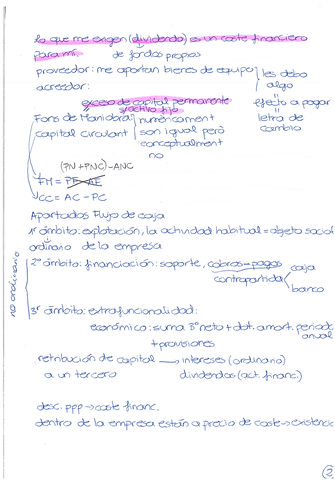 lo que me exigen (dividendo) es un coste financiero
para mi. de fondos propios
proveedor: me aportan bienes de equipo
acreedor:
les debo
algo
exceso de capital permanente
s/activo fijo
efecto a pagar
letra de
cambio
Fons de Maniobra
capital circulant
numèricament
son igual però
conceptualment
no
(PN + PNC) - ANC
FM = PF - AF
CC = AC - PC
Apartados Flujo de caja
1º ámbito: explotación, la actividad habitual = objeto social
ordinario de la empresa
2º ámbito: financiación: soporte, cobros - pagos
contrapartida
caja
banco
no ordinario
3º ámbito: extrafuncionalidad:
económica: suma Bº neto + dot. amort. periodo
anual
+ provisiones
retribución de capital → intereses (ordinario)
a un tercero dividendos (act. financ.)
desc. ppp → coste financ.
dentro de la empresa están a precio de coste → existenc
(2